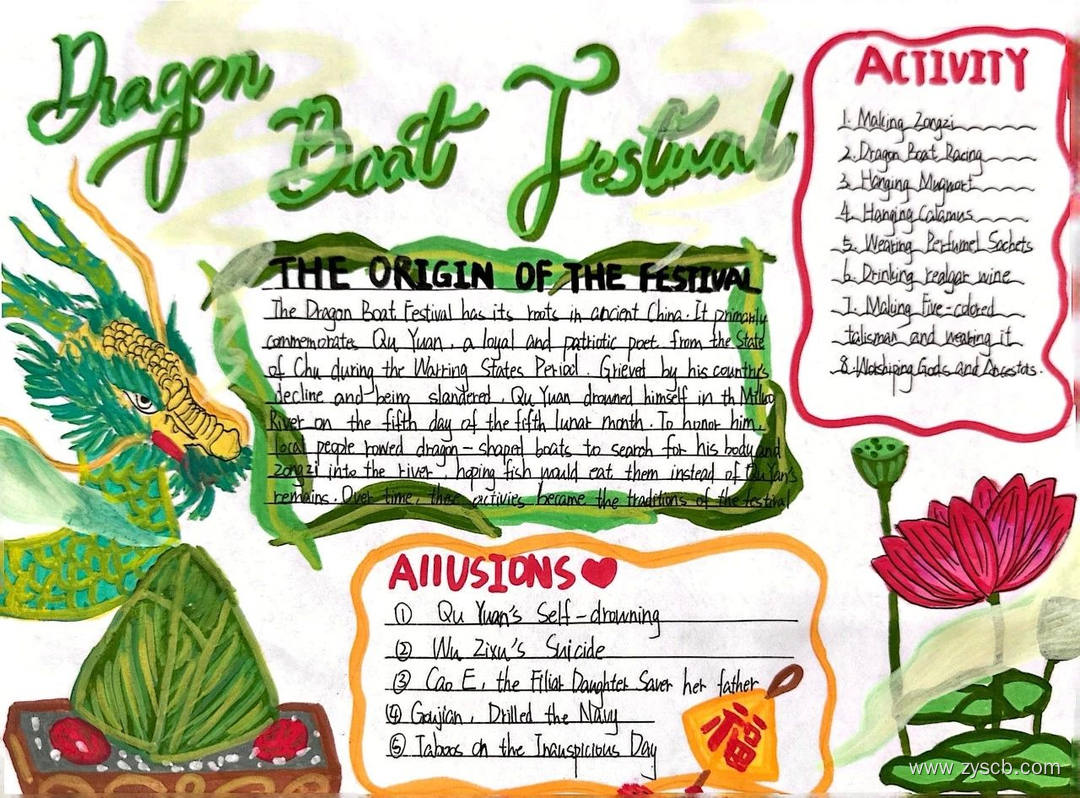 Dragon
Boat Festival
THE ORIGIN OF THE FESTIVAL
The Dragon Boat Festival has its roots in ancient China. It primarily
commemorates Qu Yuan, a loyal and patriotic poet from the State
of Chu during the Warring States Period. Grieved by his country's
decline and being slandered, Qu Yuan drowned himself in th Miluo
River on the fifth day of the fifth lunar month. To honor him,
local people rowed dragon-shaped boats to search for his body and
zongzi into the river, hoping fish would eat them instead of Qu Yan's
remains. Over time, these activies became the traditions of the festival
ACTIVITY
1. Making Zongzi
2. Dragon Boat Racing
3. Hanging Mugwort
4. Hanging Calamus
5. Wearing Perfumel Sachets
6. Drinking realgar wine
7. Making Five-colored
talisman and wearing it
8. Worshiping Gods and Ancestots.
AllUSIONS
① Qu Yuan's Self-drowning
② Wu Zixu's Suicide
③ Cao E, the Filiar Daughter Saver her father
④ Goujian, Drilled the Navy
⑤ Taboos on the Inauspicious Day
福
www.zyscb.com